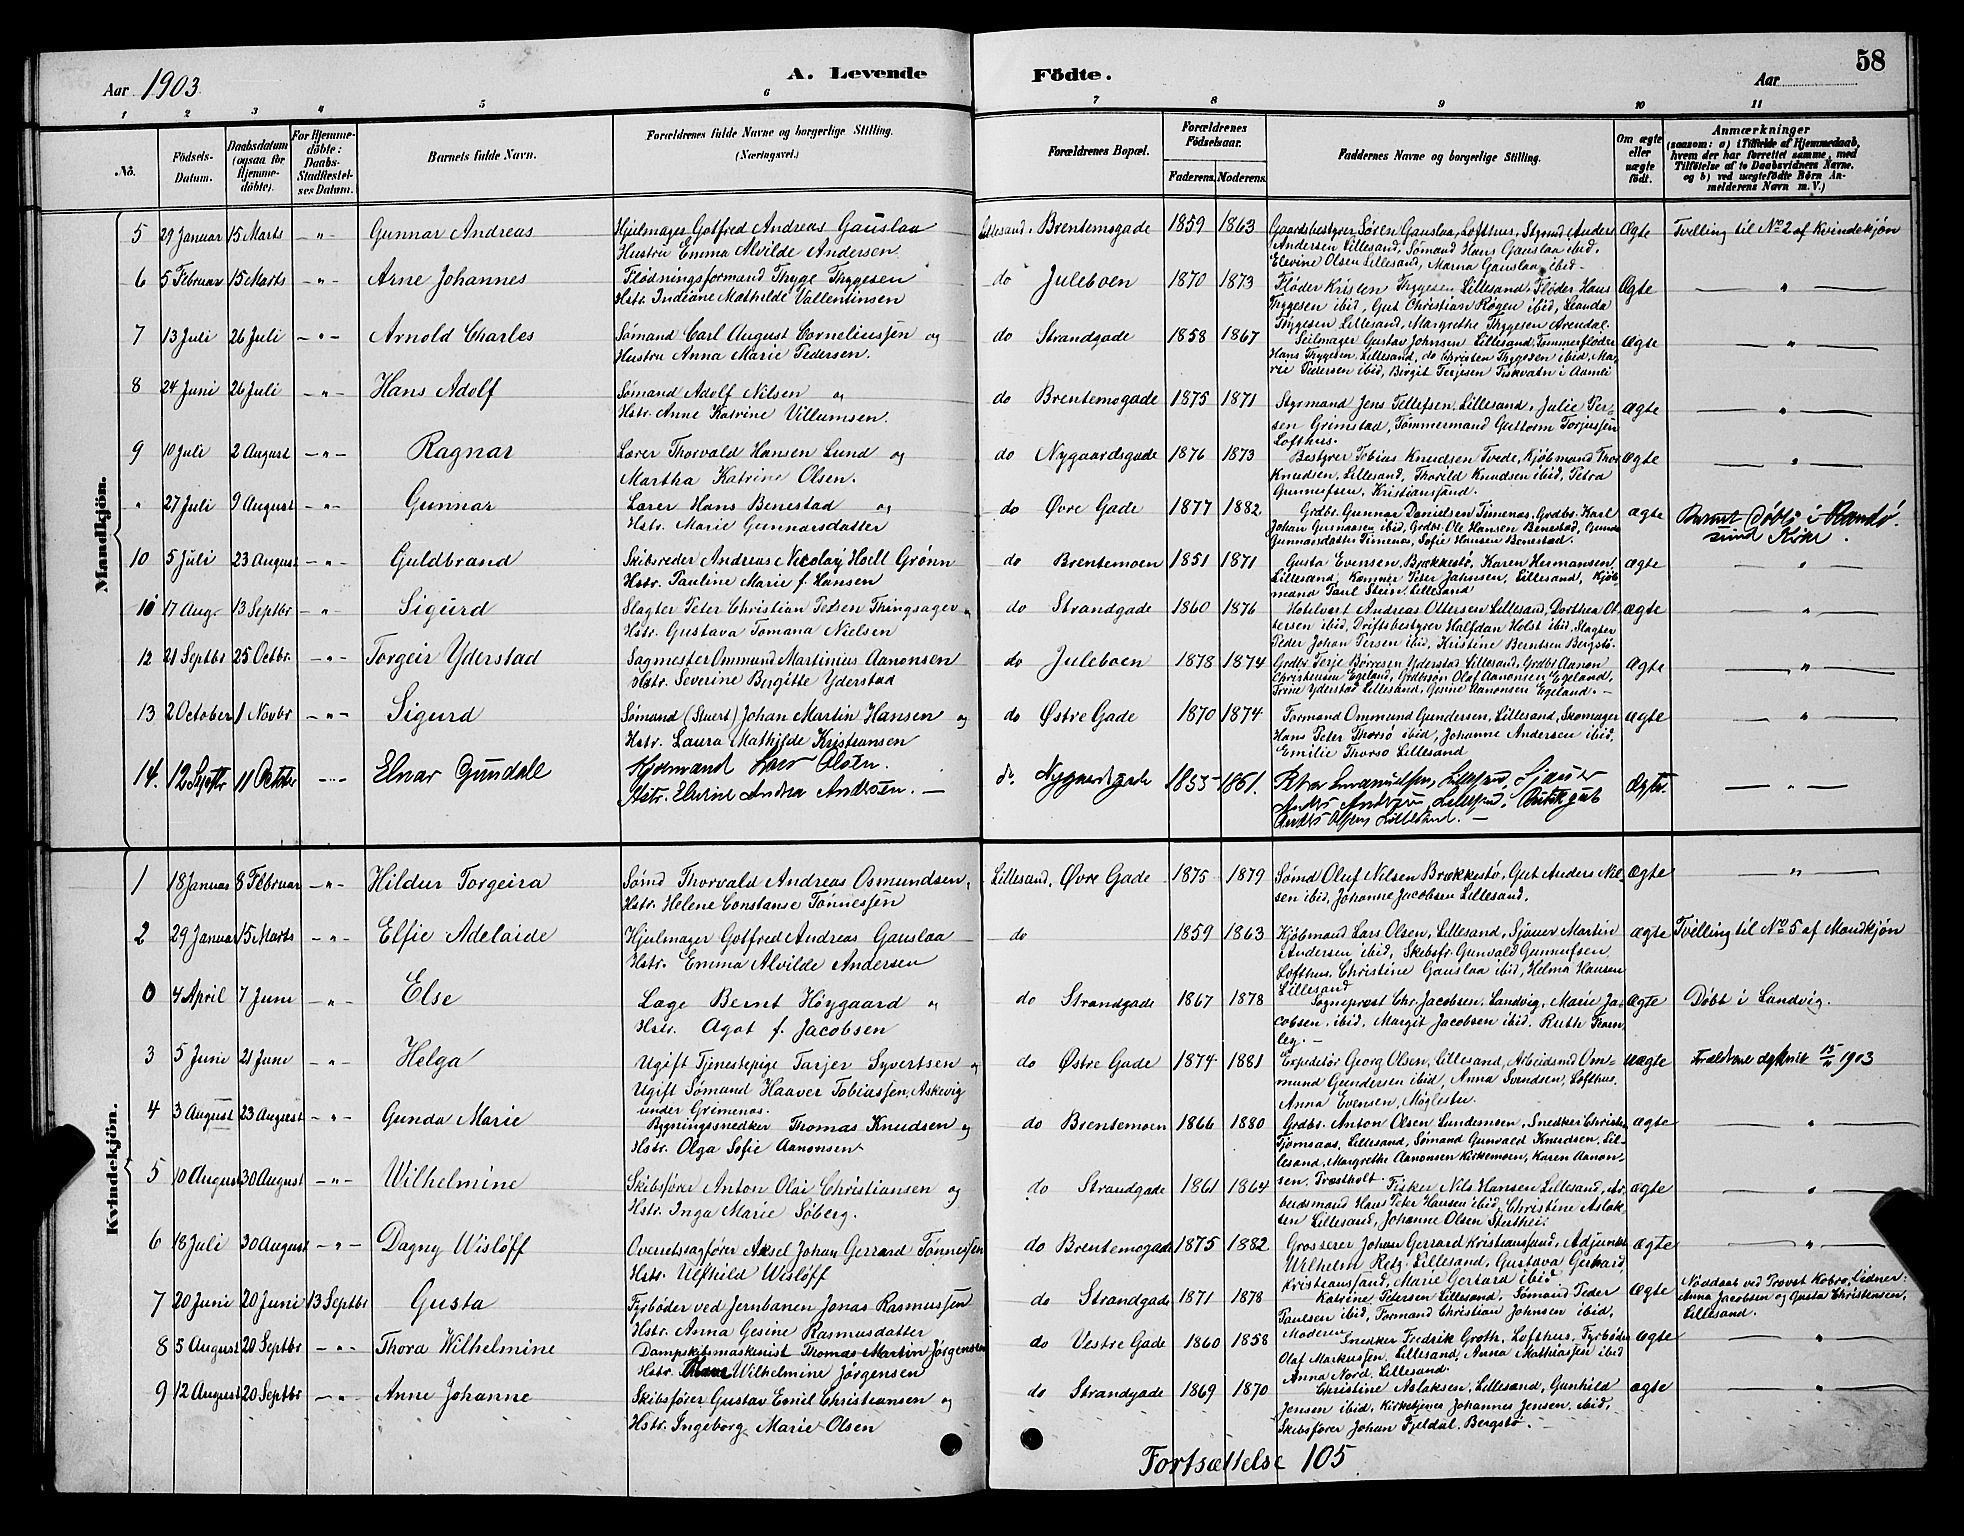 58
Aar 1903
A. Levende Födte.
Aar
1 2 3 4 5 6 7 8 9 10 11
No.
Födsels-Datum.
Daabsdatum (ogsaa for Hjemmedöbte).
For Hjemmedöbte: Daabs-Stadfæstelses Datum.
Barnets fulde Navn.
Forældrenes fulde Navne og borgerlige Stilling. (Næringsvei.)
Forældrenes Bopæl.
Forældrenes Födselsaar.
Faderens. Moderens.
Faddernes Navne og borgerlige Stilling.
Om ægte eller uægte født.
Anmærkninger (saasom: a) i Tilfælde af Hjemmedaab, hvem der har forrettet samme, med Tilföielse af to Daabsvidners Navne. og b) ved uægtefödte Börn Anmelderens Navn m. V.)
Mandkjön.
5 29 Januar 15 Marts -"- Gunnar Andreas Hjulmager Gotfred Andreas Gauslaa Lillesand. Brentemogade 1859 1863 Gaardsbestyrer Søren Gauslaa, Lofthus, Stymd Anders Ægte Tvilling til No 2 af Kvindekjøn
Hustru Emma Alvilde Andersen Andersen Lillesand, Sømand Hans Gauslaa ibid,
Elevine Olsen Lillesand, Marna Gauslaa ibid-
6 5 Februar 15 Marts -"- Arne Johannes Flødningsformand Thyge Thygesen do Juleboen 1870 1873 Fløder Kristen Thygesen Lillesand Fløder Hans Ægte "
Hstr. Indiane Mathilde Vallentinsen Thygesen ibid, Gut Christian Røgen ibid, Leanda
Thygesen Lillesand, Margrethe Thygesen Arendal.
7 13 Juli 26 Juli -"- Arnold Charles Sømand Carl August Corneliussen og do Strandgade 1858 1867 Seilmager Gustav Johnsen Lillesand, Tømmerfløder ægte "
Hustru Anna Marie Pedersen. Hans Thygesen, Lillesand, do Christen Thygesen ibid, Ma-
rie Pedersen ibid, Birgit Terjesen Fiskvatn i Aamli
8 24 Juni 26 Juli -"- Hans Adolf Sømand Adolf Nilsen og do Brentemogade 1875 1871 Styrmand Jens Tellefsen, Lillesand, Julie Per- ægte "
Hstr. Anne Katrine Villumsen. sen Grimstad, Tømmermand Guttorm Torjussen
Lofthus.
9 10 Juli 2 August -"- Ragnar Lærer Thorvald Hansen Lund og do Nygaardsgade 1876 1873 Bestyrer Tobias Knudsen Tvede, Kjøbmand Thor ægte "
Martha Katrine Olsen. Knudsen, Lillesand, Thorild Knudsen ibid, Petra
Gunneufsen, Kristiansand.
" 27 Juli 9 August -"- Gunnar Lærer Hans Benestad og do Øvre Gade 1877 1882 Grdbr. Gunnar Danielsen Timenes, Grdbr. Karl ægte Barnet døbt i Randø-
Hstr. Marie Gunnarsdatter Johan Gunnarsen ibid, Grdbr. Ole Hansen Benestad, Gunda sund Kirke.
Gunnarsdatter Timenes, Sofie Hansen Benestad.
10 5 Juli 23 August -"- Guldbrand Skibsreder Andreas Nicolay Holt Grønn do Brentemoen 1851 1871 Gusta Evensen, Brækkestø, Karen Hermansen, ægte "
Hstr. Pauline Marie f. Hansen Lillesand, Kontor Peter Jahnsen, Lillesand, Kjøb-
mand Paul Stein, Lillesand
10 17 Aug. 13 Septbr -"- Sigurd Slagter Peter Christian Pedsen Thingsager og do Strandgade 1860 1876 Hotelvert Andreas Ottersen Lillesand, Dorthea Ot- ægte "
Hstr. Gustava Tomana Nielsen tersen ibid, Driftsbestyrer Halfdan Holst ibid, Slagter
Peder Johan Persen ibid, Kristine Berntsen Bergstø.
12 21 Septbr 25 Octbr. -"- Torgeir Yderstad Sagmester Ommund Martinius Aanonsen do Juleboen 1878 1874 Grdbr. Terje Børresen Yderstad Lillesand, Grdbr Aanon Ægte "
Hstr. Severine Bergitte Yderstad Christensen Egeland, Grdbrsøn Olaf Aanonsen Egeland,
Trine Yderstad Lillesand, Gesine Aanonsen Egeland. -
13 2 October 1 Novbr -"- Sigurd Sømand (Stuert) Johan Martin Hansen og do Østre Gade 1870 1874 Formand Ommund Gundersen, Lillesand, Skomager ægte "
Hstr. Laura Mathilde Kristiansen Hans Peter Thorsø ibid, Johanne Andersen ibid,
Emilie Thorsø Lillesand
14. 12 Septbr 11 October -"- Elnar Gundolf Kjøbmand Lars Olsen. do. Nygaardsgade 1855 1861. Lillesand, Sjauer Ægte. "
Hstr. Elevine Andrea Andersen. - Anders Andersen Lillesand, Butikgut
Anders Olsen Lillesand. -
Kvindekjön.
1 18 Januar 8 Februar -"- Hildur Torgeira Sømd Thorvald Andreas Osmundsen, Lillesand, Øvre Gade 1875 1879 Sømd Oluf Nilsen Brækkestø, Gut Anders Nil- ægte "
Hstr. Helene Constanse Tønnessen sen ibid, Johanne Jacobsen Lillesand.
2 29 Januar 15 Marts -"- Elfie Adelaide Hjulmager Gotfred Andreas Gauslaa do 1859 1863 Kjøbmand Lars Olsen, Lillesand, Sjauer Martin ægte Tvilling til No 5 af Mandkjøn
Hstr. Emma Alvilde Andersen Andersen ibid, Skibsfr. Gunvald Gunneufsen,
Lofthus, Christine Gauslaa ibid, Helma Hansen
Lillesand
0 4 April 7 Juni -"- Else Læge Bernt Høygaard " do Strandgade 1867 1878 Sogneprest Chr. Jacobsen, Landvig, Marie Ja- ægte Døbt i Landvig.
Hstr. Agot f. Jacobsen cobsen, ibid, Margit Jacobsen ibid, Ruth
3 5 Juni 21 Juni -"- Helga Ugift Tjenestepige Tarjer Syvertsen og do Østre Gade 1874 1881 Expeditør Georg Olsen, Lillesand, Arbeidsmd Om- uægte Forældrene ægteviede 1903
Ugift Sømand Haaver Tobiassen, Askevig mund Gundersen ibid, Anna Svendsen, Lofthus,
under Grimenæs. Anna Evensen, Møglestu.
4 3 August 23 August -"- Gunda Marie Bygningssnedker Thomas Knudsen og do Brentemoen 1866 1880 Grdbr. Anton Olsen Lundemoen, Snedker Christen ægte "
Hstr. Olga Sofie Aanonsen Tjomsaas, Lillesand, Sømand Gunvald Knudsen, Lil-
lesand, Margrethe Aanonsen Kirkemoen, Karen Aanon-
sen, Præstholt.
5 10 August 30 August -"- Wilhelmine Skibsfører Anton Olai Christiansen og do Strandgade 1861 1864 Fisker Nils Hansen Lillesand, Ar- ægte "
Hstr. Inga Marie Søberg. beidsmand Hans Peter Hansen ibid, Christine Aslak-
sen Lillesand, Johanne Olsen Stertheii
6 18 Juli 30 August -"- Dagny Wisløff Overretssagfører Aksel Johan Gerrard Tønnessen do Brentemogade 1875 1882 Grosserer Johan Gerrard Kristiansand, Adjunkt ægte "
Hstr. Ulfhild Wisløff Wilhelm Retz, Lillesand, Gustava Gerrard
Kristiansand, Marie Gerrard ibid
7 20 Juni 20 Juni 13 Septbr Gusta Fyrbøder ved Jernbanen Jonas Rasmussen do Strandgade 1871 1878 Katrine Petersen Lillesand, Sømand Peder Ægte Nøddaab ved Provst Kobro, Vidner:
Hstr. Anna Gesine Rasmusdatter Paulsen ibid, Formand Christian Johnsen ibid, Anna Jacobsen og Gusta Christensen,
Moderen Lillesand.
8 5 August 20 Septbr -"- Thora Wilhelmine Dampskibsmaskinist Thomas Martin Jørgensen do Vestre Gade 1860 1858 Snedker Fredrik Groth, Lofthus, Fyrbøder ægte "
Hstr. Wilhelmine Jørgensen Olaf Markussen, Lillesand, Anna Mathiassen ibid
Anna Nord, Lillesand.
9 12 August 20 Septbr -"- Anne Johanne Skibsfører Gustav Emil Christiansen og do Strandgade 1869 1870 Christine Aslaksen, Lillesand, Gunhild ægte "
Hstr. Ingeborg Marie Olsen Jensen ibid, Kirketjener Johannes Jensen, ibid,
Skibsfører Johan Fjeldal, Bergstø -
Fortsættelse 105